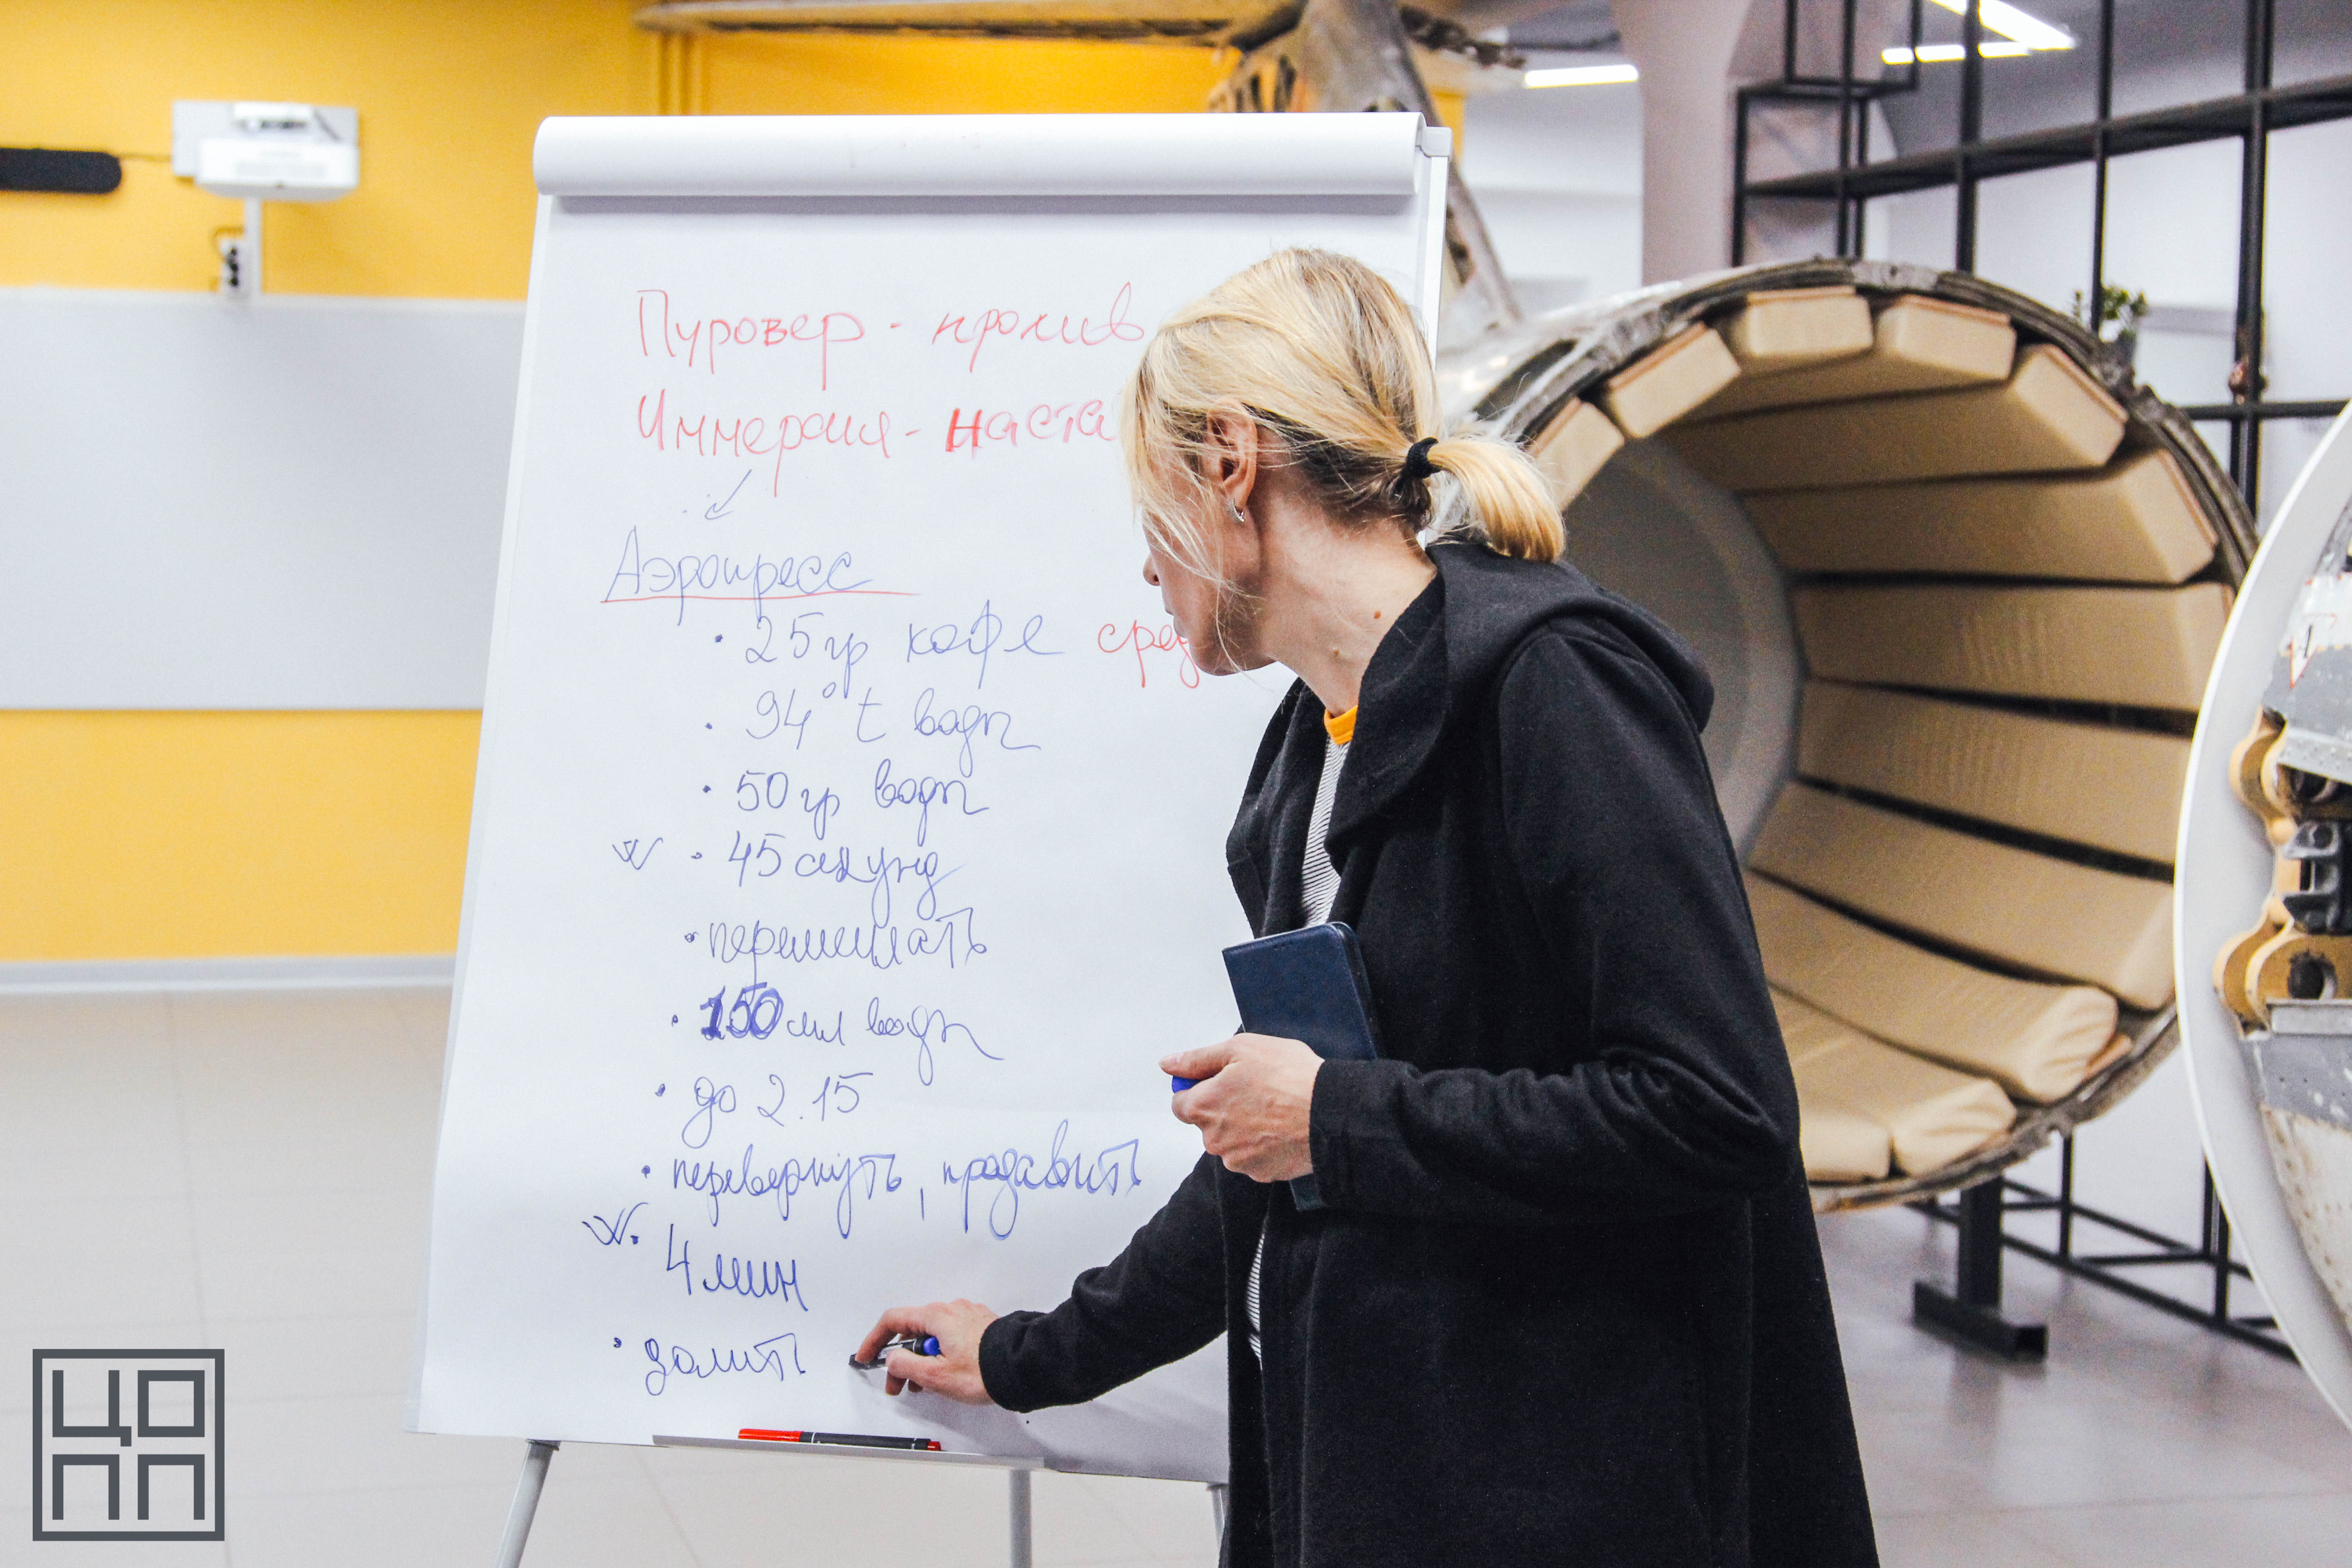 Пуровер - пролив
Иммерсия - наста
Аэропресс
• 25 гр кофе сред
• 94° t воды
• 50 гр воды
• 45 секунд
• перемешать
• 150 мл воды
• до 2.15
• перевернуть, продавить
• 4 мин
• долить
ЦО
ПП